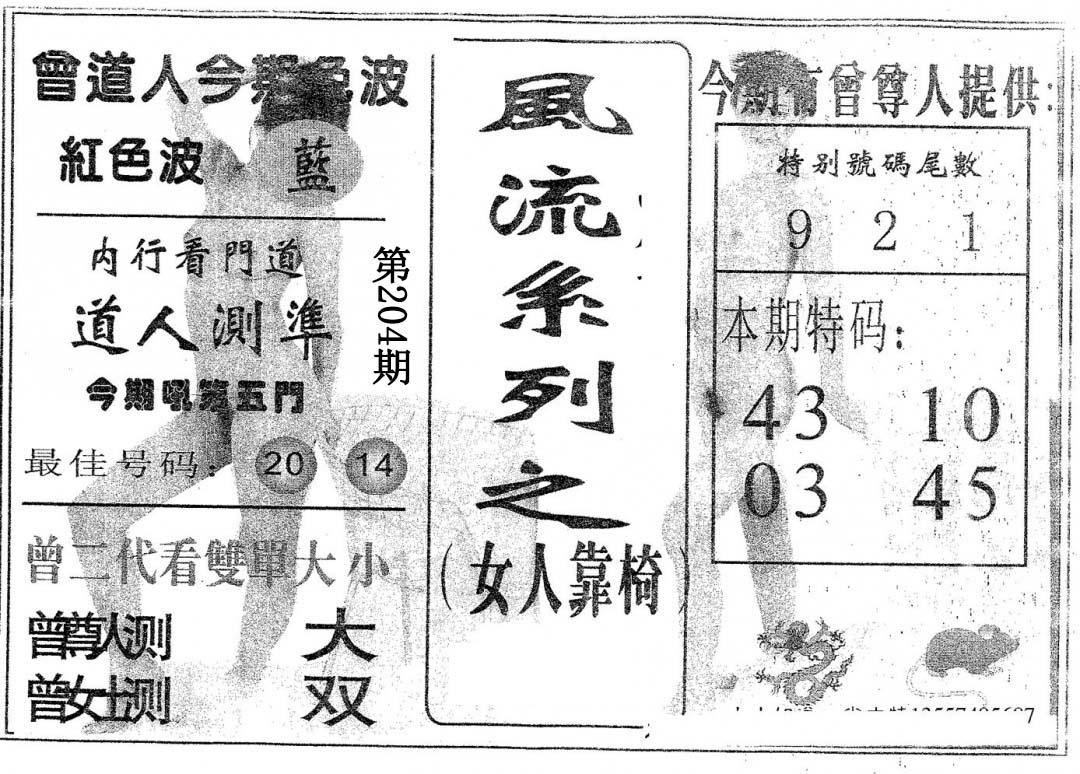 曾道人今期色波
紅色波 藍
内行看門道
道人測準
今期吼第五門
最佳号码: 20 14
曾二代看雙單大小
曾尊人测 大
曾女士测 双
第204期
風流系列之
(女人靠椅)
今期有曾尊人提供:
特别號碼尾數
9 2 1
本期特码:
43 10
03 45